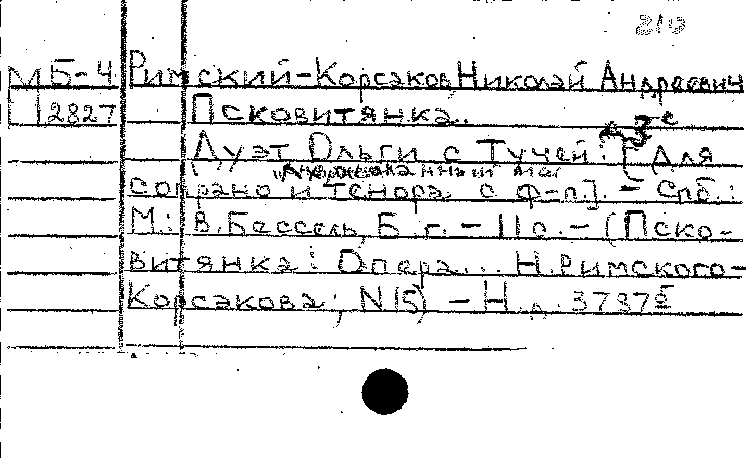 210
МБ-4 Римский-Корсаков, Николай Андреевич
П 2827 Псковитянка.
Дуэт Ольги с Тучей: [Для
сопрано и тенора с ф-п.]. - Спб.:
М.: В. Бессель, Б.г. - 11с. - (Пско-
витянка: Опера... Н. Римского-
Корсакова; N 15) - Н.д. 3737